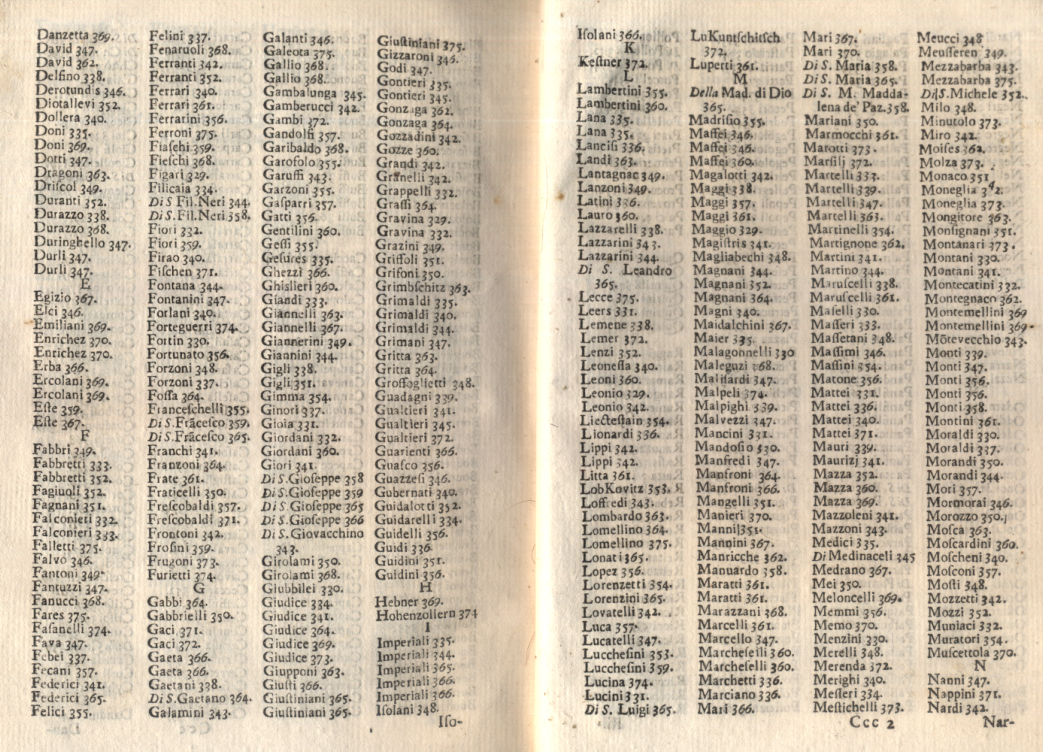 Danzetta 369.
David 347.
David 362.
Delfino 338.
Derotundis 346.
Diotallevi 352.
Dollera 340.
Doni 335.
Doni 369.
Dotti 347.
Dragoni 363.
Driſcol 349.
Duranti 352.
Durazzo 338.
Durazzo 368.
Duringhello 347.
Durli 347.
Durli 347.
E
Egizio 367.
Elci 346.
Emiliani 369.
Enrichez 370.
Enrichez 370.
Erba 366.
Ercolani 369.
Ercolani 369.
Eſte 359.
Eſte 367.
F
Fabbri 349.
Fabbretti 333.
Fabbretti 352.
Fagiuoli 352.
Fagnani 351.
Falconieri 332.
Falconieri 333.
Falletti 375.
Falvo 346.
Fantoni 349.
Fantuzzi 347.
Fanucci 368.
Fares 375.
Faſanelli 374.
Fava 347.
Febei 337.
Fecani 357.
Federici 341.
Federici 365.
Felici 355.
Felini 337.
Fenaruoli 368.
Ferranti 342.
Ferranti 352.
Ferrari 340.
Ferrari 361.
Ferrarini 356.
Ferroni 375.
Fiaſchi 359.
Fieſchi 368.
Figari 329.
Filicaia 334.
Di S. Fil. Neri 344.
Di S. Fil. Neri 358.
Fiori 332.
Fiori 359.
Firao 340.
Fiſchen 371.
Fontana 344.
Fontanini 347.
Forlani 340.
Forteguerri 374.
Fortin 330.
Fortunato 356.
Forzoni 348.
Forzoni 337.
Foſſa 364.
Franceſchelli 355.
Di S. Frãceſco 359.
Di S. Frãceſco 365.
Franchi 341.
Franzoni 364.
Frate 361.
Fraticelli 350.
Freſcobaldi 357.
Freſcobaldi 371.
Frontoni 342.
Froſini 359.
Frugoni 373.
Furietti 374.
G
Gabbi 364.
Gabbrielli 350.
Gaci 371.
Gaci 372.
Gaeta 366.
Gaeta 366.
Gaetani 338.
Di S. Gaetano 364.
Galamini 343.
Galanti 346.
Galeota 375.
Gallio 368.
Gallio 368.
Gambalunga 345.
Gamberucci 342.
Gambi 372.
Gandolfi 357.
Garibaldo 368.
Garofolo 355.
Garuffi 343.
Garzoni 355.
Gaſparri 357.
Gatti 356.
Gentilini 360.
Geſſi 355.
Geſures 335.
Ghezzi 366.
Ghislieri 360.
Giandi 333.
Giannelli 363.
Giannelli 367.
Giannerini 349.
Giannini 344.
Gigli 338.
Gigli 351.
Gimma 354.
Ginori 337.
Gioia 331.
Giordani 332.
Giordani 360.
Giori 341.
Di S. Gioſeppe 358
Di S. Gioſeppe 359
Di S. Gioſeppe 365
Di S. Gioſeppe 366
Di S. Giovacchino
343.
Girolami 350.
Girolami 368.
Giubbilei 330.
Giudice 334.
Giudice 341.
Giudice 364.
Giudice 369.
Giudice 373.
Giupponi 363.
Giuſti 366.
Giuſtiniani 365.
Giuſtiniani 365.
Giuſtiniani 375.
Gizzaroni 346.
Godi 347.
Gontieri 335.
Gontieri 345.
Gonzaga 362.
Gonzaga 364.
Gozzadini 342.
Gozze 360.
Grandi 342.
Granelli 342.
Grappelli 332.
Graſſi 364.
Gravina 329.
Gravina 332.
Grazini 349.
Griffoli 351.
Grifoni 350.
Grimbſchitz 363.
Grimaldi 335.
Grimaldi 340.
Grimaldi 344.
Grimani 347.
Gritta 363.
Gritta 364.
Groſſoglietti 348.
Guadagni 339.
Gualtieri 341.
Gualtieri 345.
Gualtieri 372.
Guarienti 366.
Guaſco 356.
Guazzeſi 346.
Gubernati 340.
Guidalotti 352.
Guidarelli 334.
Guidelli 356.
Guidi 336.
Guidini 351.
Guidini 356.
H
Hebner 369.
Hohenzollern 374
I
Imperiali 335.
Imperiali 344.
Imperiali 365.
Imperiali 366.
Imperiali 366.
Iſolani 348.
Iſo-
Iſolani 366.
K
Keſtner 372.
L
Lambertini 355.
Lambertini 360.
Lana 335.
Lana 335.
Lanciſi 336.
Landi 363.
Lantagnac 349.
Lanzoni 349.
Latini 336.
Lauro 360.
Lazzarelli 338.
Lazzarini 343.
Lazzarini 344.
Di S. Leandro
365.
Lecce 375.
Leers 331.
Lemene 338.
Lemer 372.
Lenzi 352.
Leoneſſa 340.
Leoni 360.
Leonio 329.
Leonio 342.
Liecteſtain 354.
Lionardi 336.
Lippi 342.
Lippi 342.
Litta 361.
LobKovitz 353.
Loffredi 343.
Lombardo 363.
Lomellino 364.
Lomellino 375.
Lonati 365.
Lopez 356.
Lorenzetti 354.
Lorenzini 365.
Lovatelli 342.
Luca 357.
Lucatelli 347.
Luccheſini 353.
Luccheſini 359.
Lucina 374.
Lucini 331.
Di S. Luigi 365.
LuKuntſchitſch
372.
Lupetti 361.
M
Della Mad. di Dio
365.
Madriſio 355.
Maffei 346.
Maffei 346.
Maffei 360.
Magalotti 342.
Maggi 338.
Maggi 357.
Maggi 361.
Maggio 329.
Magiſtris 341.
Magliabechi 348.
Magnani 344.
Magnani 352.
Magnani 364.
Magni 340.
Maidalchini 367.
Maier 335.
Malagonnelli 330
Maleguzi 368.
Malisardi 347.
Malpeli 374.
Malpighi 339.
Malvezzi 347.
Mancini 331.
Mandoſio 330.
Manfredi 347.
Manfroni 364.
Manfroni 366.
Mangelli 351.
Manieri 370.
Mannij 351.
Mannini 367.
Manricche 362.
Manuardo 358.
Maratti 361.
Maratti 361.
Marazzani 368.
Marcelli 361.
Marcello 347.
Marcheſelli 360.
Marcheſelli 360.
Marchetti 336.
Marciano 336.
Mari 366.
Mari 367.
Mari 370.
Di S. Maria 358.
Di S. Maria 365.
Di S. M. Madda-
lena de' Paz. 358.
Mariani 350.
Marmocchi 361.
Marotti 373.
Marſilj 372.
Martelli 333.
Martelli 339.
Martelli 347.
Martelli 363.
Martinelli 354.
Martignone 362.
Martini 341.
Martino 344.
Maruſcelli 338.
Maruſcelli 361.
Maſelli 330.
Maſſeri 333.
Maſſetani 348.
Maſſimi 346.
Maſſini 354.
Matone 356.
Mattei 331.
Mattei 336.
Mattei 340.
Mattei 371.
Mauri 339.
Maurizj 341.
Mazza 352.
Mazza 360.
Mazza 369.
Mazzoleni 341.
Mazzoni 343.
Medici 335.
Di Medinaceli 345
Medrano 367.
Mei 350.
Meloncelli 369.
Memmi 356.
Memo 370.
Menzini 330.
Merelli 348.
Merenda 372.
Merighi 340.
Meſſeri 334.
Meſtichelli 373.
Ccc 2
Meucci 348
Meuſſeren 349.
Mezzabarba 343.
Mezzabarba 375.
Di S. Michele 352.
Milo 348.
Minutolo 373.
Miro 342.
Moiſes 362.
Molza 373.
Monaco 351
Moneglia 342.
Moneglia 373.
Mongitore 363.
Monſignani 351.
Montanari 373.
Montani 330.
Montani 341.
Montecatini 332.
Montegnaco 362.
Montemellini 369
Montemellini 369.
Mõtevecchio 343.
Monti 339.
Monti 347.
Monti 356.
Monti 356.
Monti 358.
Montini 361.
Moraldi 330.
Moraldi 337.
Morandi 350.
Morandi 344.
Mori 357.
Mormorai 346.
Morozzo 350.
Moſca 363.
Moſcardini 360.
Moſcheni 340.
Moſconi 357.
Moſti 348.
Mozzetti 342.
Mozzi 352.
Muniaci 332.
Muratori 354.
Muſcettola 370.
N
Nanni 347.
Nappini 371.
Nardi 342.
Nar-